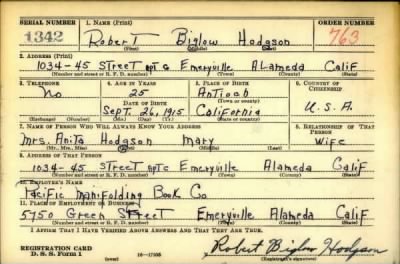 SERIAL NUMBER 1. NAME (Print) ORDER NUMBER
1342 Robert Biglow Hodgson 763
(First) (Middle) (Last)
2. ADDRESS (Print)
1034-45 Street apt c Emeryville Alameda Calif
(Number and street or R. F. D. number) (Town) (County) (State)
3. TELEPHONE 4. AGE IN YEARS 5. PLACE OF BIRTH 6. COUNTRY OF CITIZENSHIP
No 25 Antioch
(Town or county)
DATE OF BIRTH
Sept. 26, 1915 California U.S.A.
(Exchange) (Number) (Mo.) (Day) (Yr.) (State or country)
7. NAME OF PERSON WHO WILL ALWAYS KNOW YOUR ADDRESS 8. RELATIONSHIP OF THAT PERSON
Mrs. Anita Hodgson Mary Wife
(Mr., Mrs., Miss) (First) (Middle) (Last)
9. ADDRESS OF THAT PERSON
1034-45 street apt c Emeryville Alameda Calif
(Number and street or R. F. D. number) (Town) (County) (State)
10. EMPLOYER'S NAME
Pacific Manifolding Book Co
11. PLACE OF EMPLOYMENT OR BUSINESS
5750 Green Street Emeryville Alameda Calif
(Number and street or R. F. D. number) (Town) (County) (State)
I AFFIRM THAT I HAVE VERIFIED ABOVE ANSWERS AND THAT THEY ARE TRUE.
REGISTRATION CARD
D. S. S. Form 1 16-17105 Robert Biglow Hodgson
(over) (Registrant's signature)